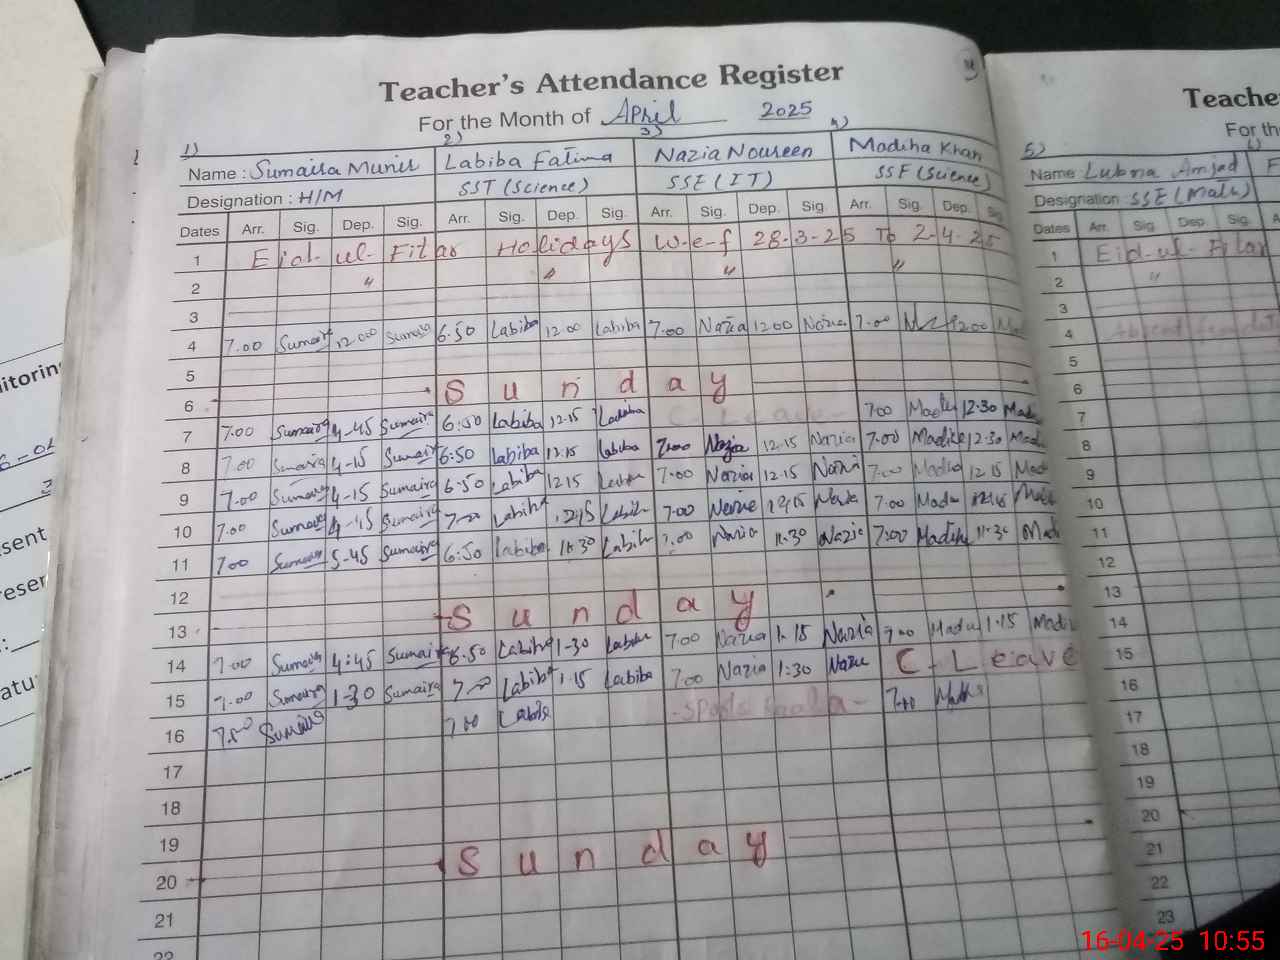 Teacher's Attendance Register
For the Month of April 2025
1) 2) 3) 4)
Name : Sumaira Munir Labiba Fatima Nazia Noureen Madiha Khan
Designation : H/M SST (Science) SSE (IT) SSE (Science)
Dates Arr. Sig. Dep. Sig. Arr. Sig. Dep. Sig. Arr. Sig. Dep. Sig. Arr. Sig. Dep. Sig.
1 Eid-ul-Fitar Holidays w-e-f 28-3-25 To 2-4-25
2 " " " "
3
4 7.00 Sumaira 12.00 Sumaira 6.50 Labiba 12.00 Labiba 7.00 Nazia 12.00 Nazia 7.00 12.00
5
6 Sunday
7 7.00 Sumaira 4-45 Sumaira 6:50 Labiba 12.15 Labiba C-Leave- 7.00 Madiha 12.30
8 7.00 Sumaira 4-15 Sumaira 6.50 Labiba 12.15 Labiba 7.00 Nazia 12.15 Nazia 7.00 Madiha 12.30
9 7.00 Sumaira 4-15 Sumaira 6.50 Labiba 12.15 Labiba 7.00 Nazia 12.15 Nazia 7.00 Madiha 12.15
10 7.00 Sumaira 4-15 Sumaira 7.00 Labiba 12.15 Labiba 7.00 Nazia 12.15 Nazia 7.00 Madiha 12.15
11 7.00 Sumaira 5-45 Sumaira 6.50 Labiba 11.30 Labiba 7.00 Nazia 11.30 Nazia 7.00 Madiha 11.30
12
13 Sunday
14 7.00 Sumaira 4:45 Sumaira 6.50 Labiba 1-30 Labiba 7.00 Nazia 1.15 Nazia 7.00 Madiha 1.15
15 7.00 Sumaira 1-30 Sumaira 7.00 Labiba 1.15 Labiba 7.00 Nazia 1:30 Nazia C-Leave
16 7.00 Sumaira 7.00 Labiba -Sports - 7.00 Madiha
17
18
19
20 Sunday
21
22
Teache
For th
5) 6)
Name Lubna Amjad F
Designation: SSE (Math)
Dates Arr. Sig. Dep. Sig. A
1 Eid-ul-Fitar
2 "
3
4
5
6
7
8
9
10
11
12
13
14
15
16
17
18
19
20
21
22
23
itorin
sent
atu
16-04-25 10:55